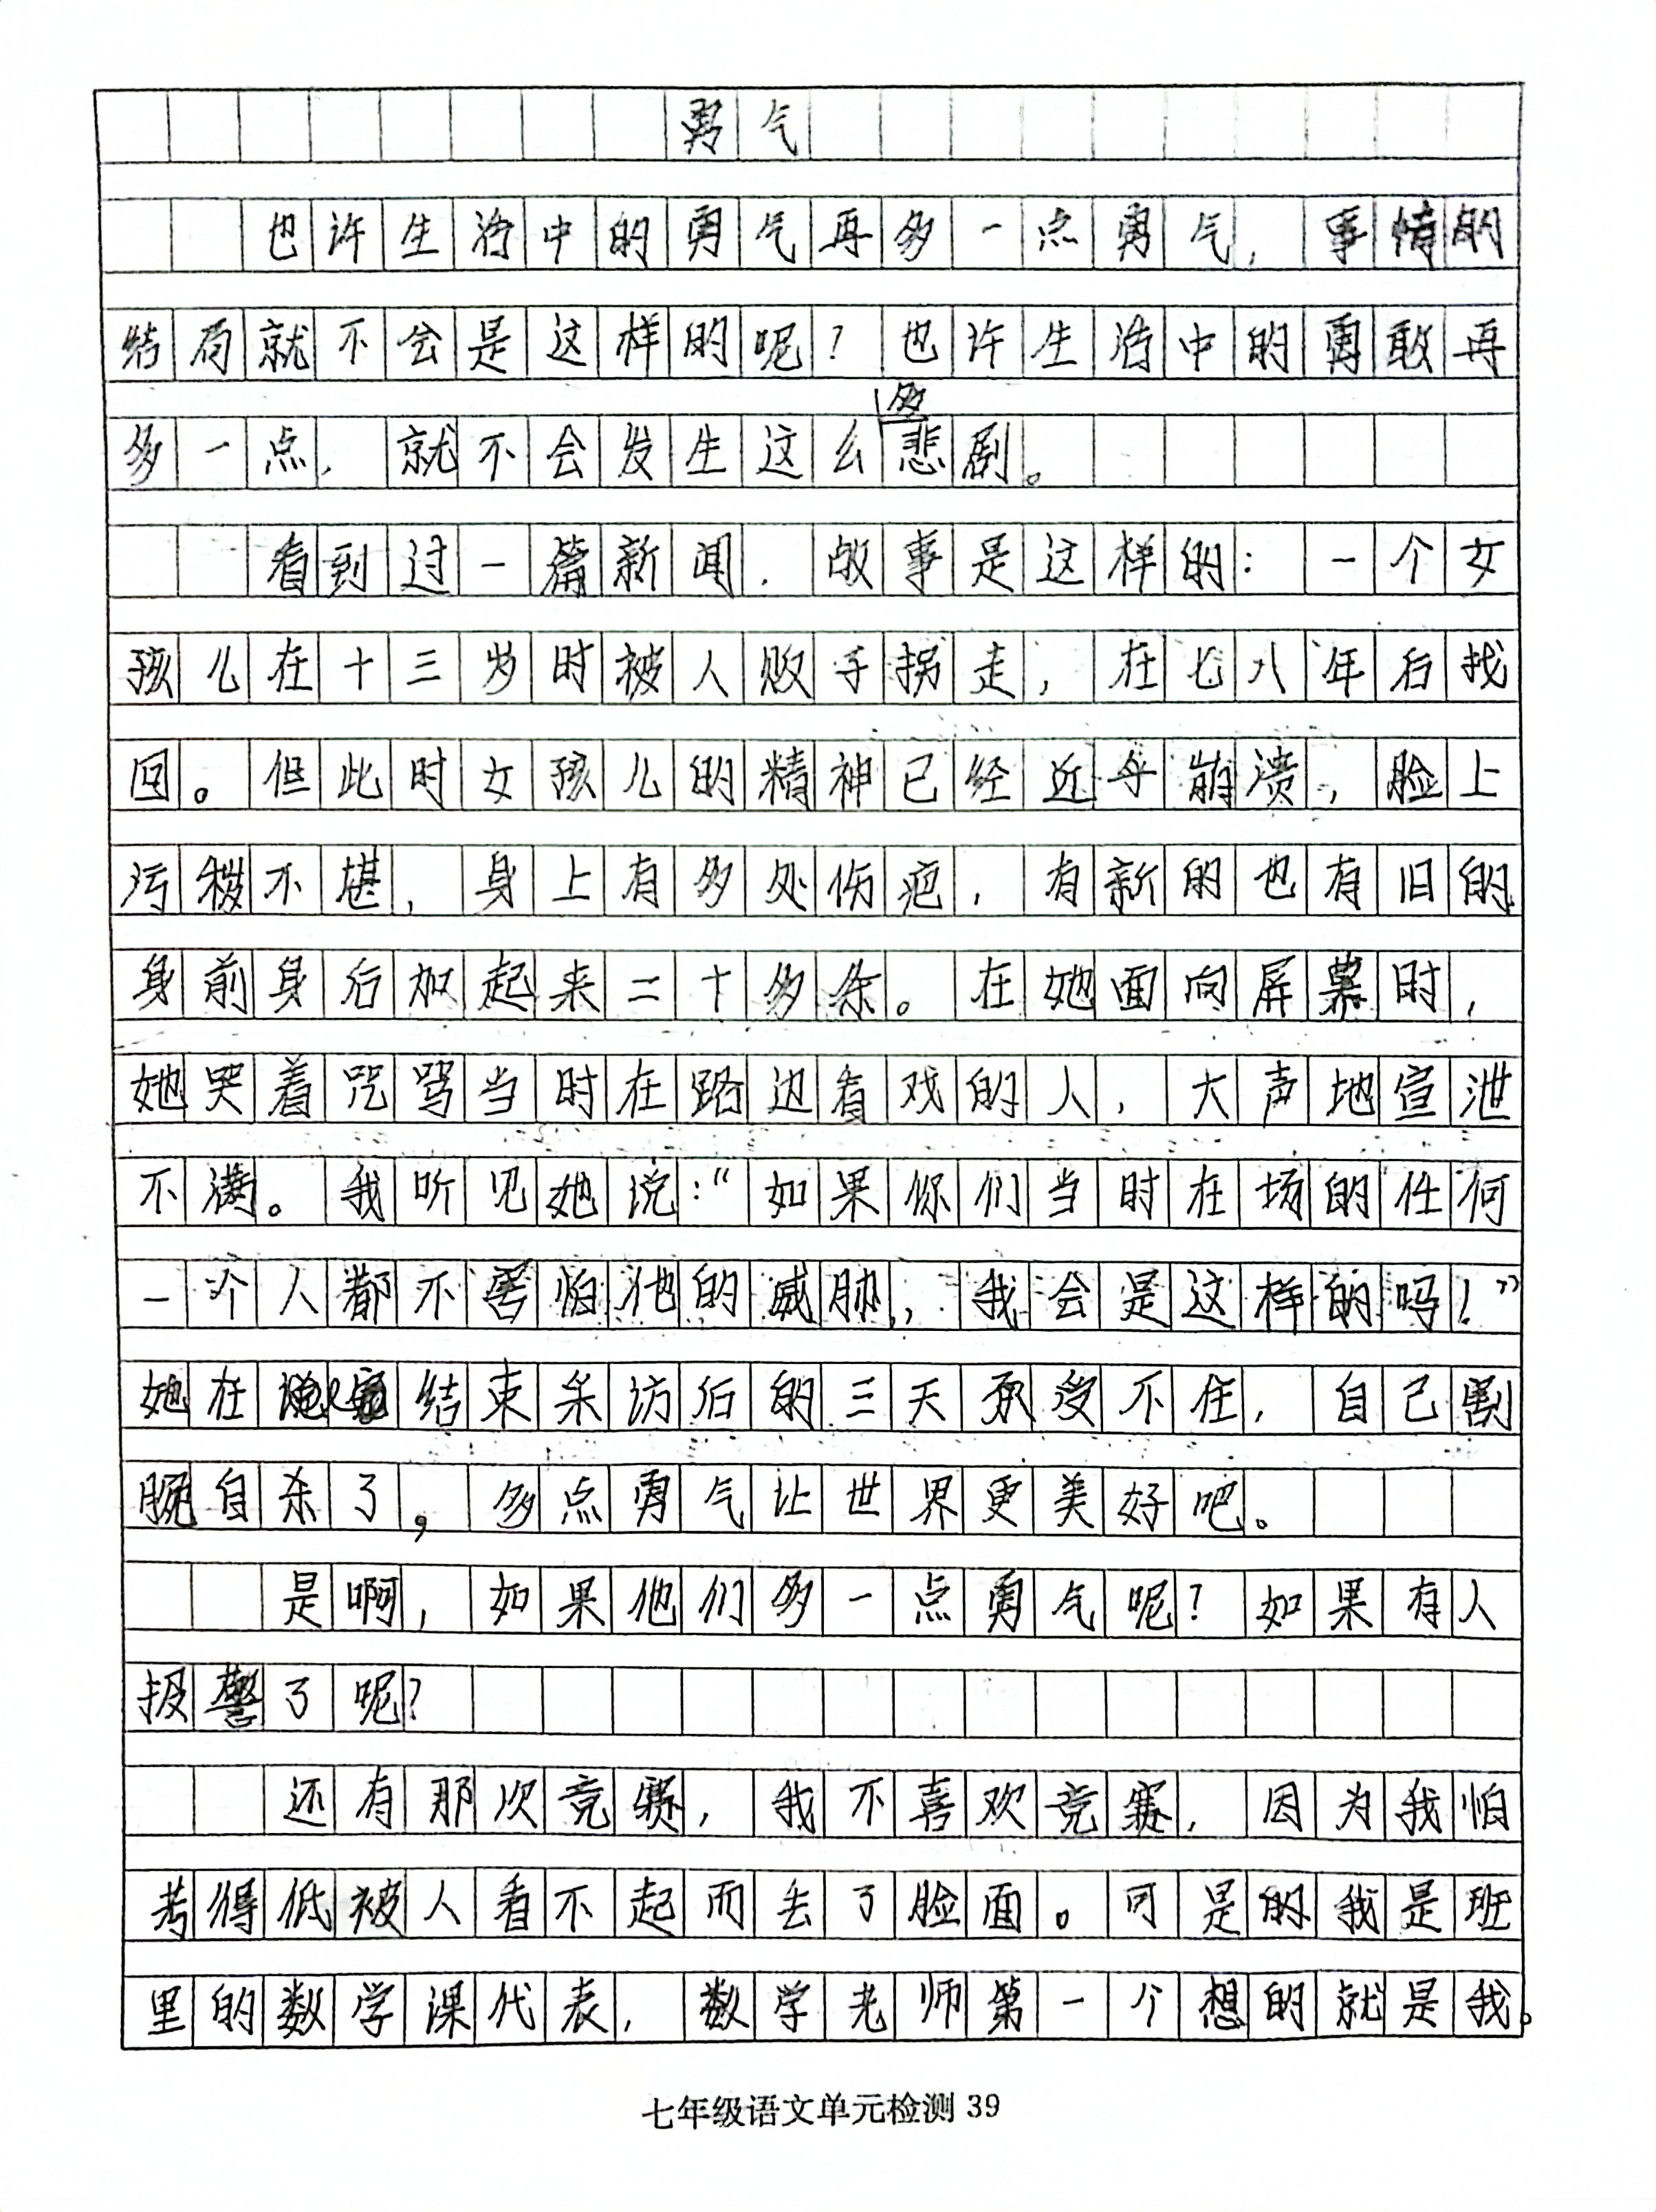 勇气
也许生活中的勇气再多一点勇气,事情的
结局就不会是这样的呢?也许生活中的勇敢再
多一点,就不会发生这么多悲剧。
看到过一篇新闻,故事是这样的:一个女
孩儿在十三岁时被人贩子拐走,在七八年后找
回。但此时女孩儿的精神已经近乎崩溃,脸上
污秽不堪,身上有多处伤疤,有新的也有旧的
身前身后加起来二十多余。在她面向屏幕时,
她哭着咒骂当时在路边看戏的人,大声地宣泄
不满。我听见她说:“如果你们当时在场的任何
一个人都不害怕他的威胁,我会是这样的吗!”
她在结束采访后的三天承受不住,自己割
腕自杀了,多点勇气让世界更美好吧。
是啊,如果他们多一点勇气呢?如果有人
报警了呢?
还有那次竞赛,我不喜欢竞赛,因为我怕
考得低被人看不起而丢了脸面。可是的我是班
里的数学课代表,数学老师第一个想的就是我。
七年级语文单元检测 39